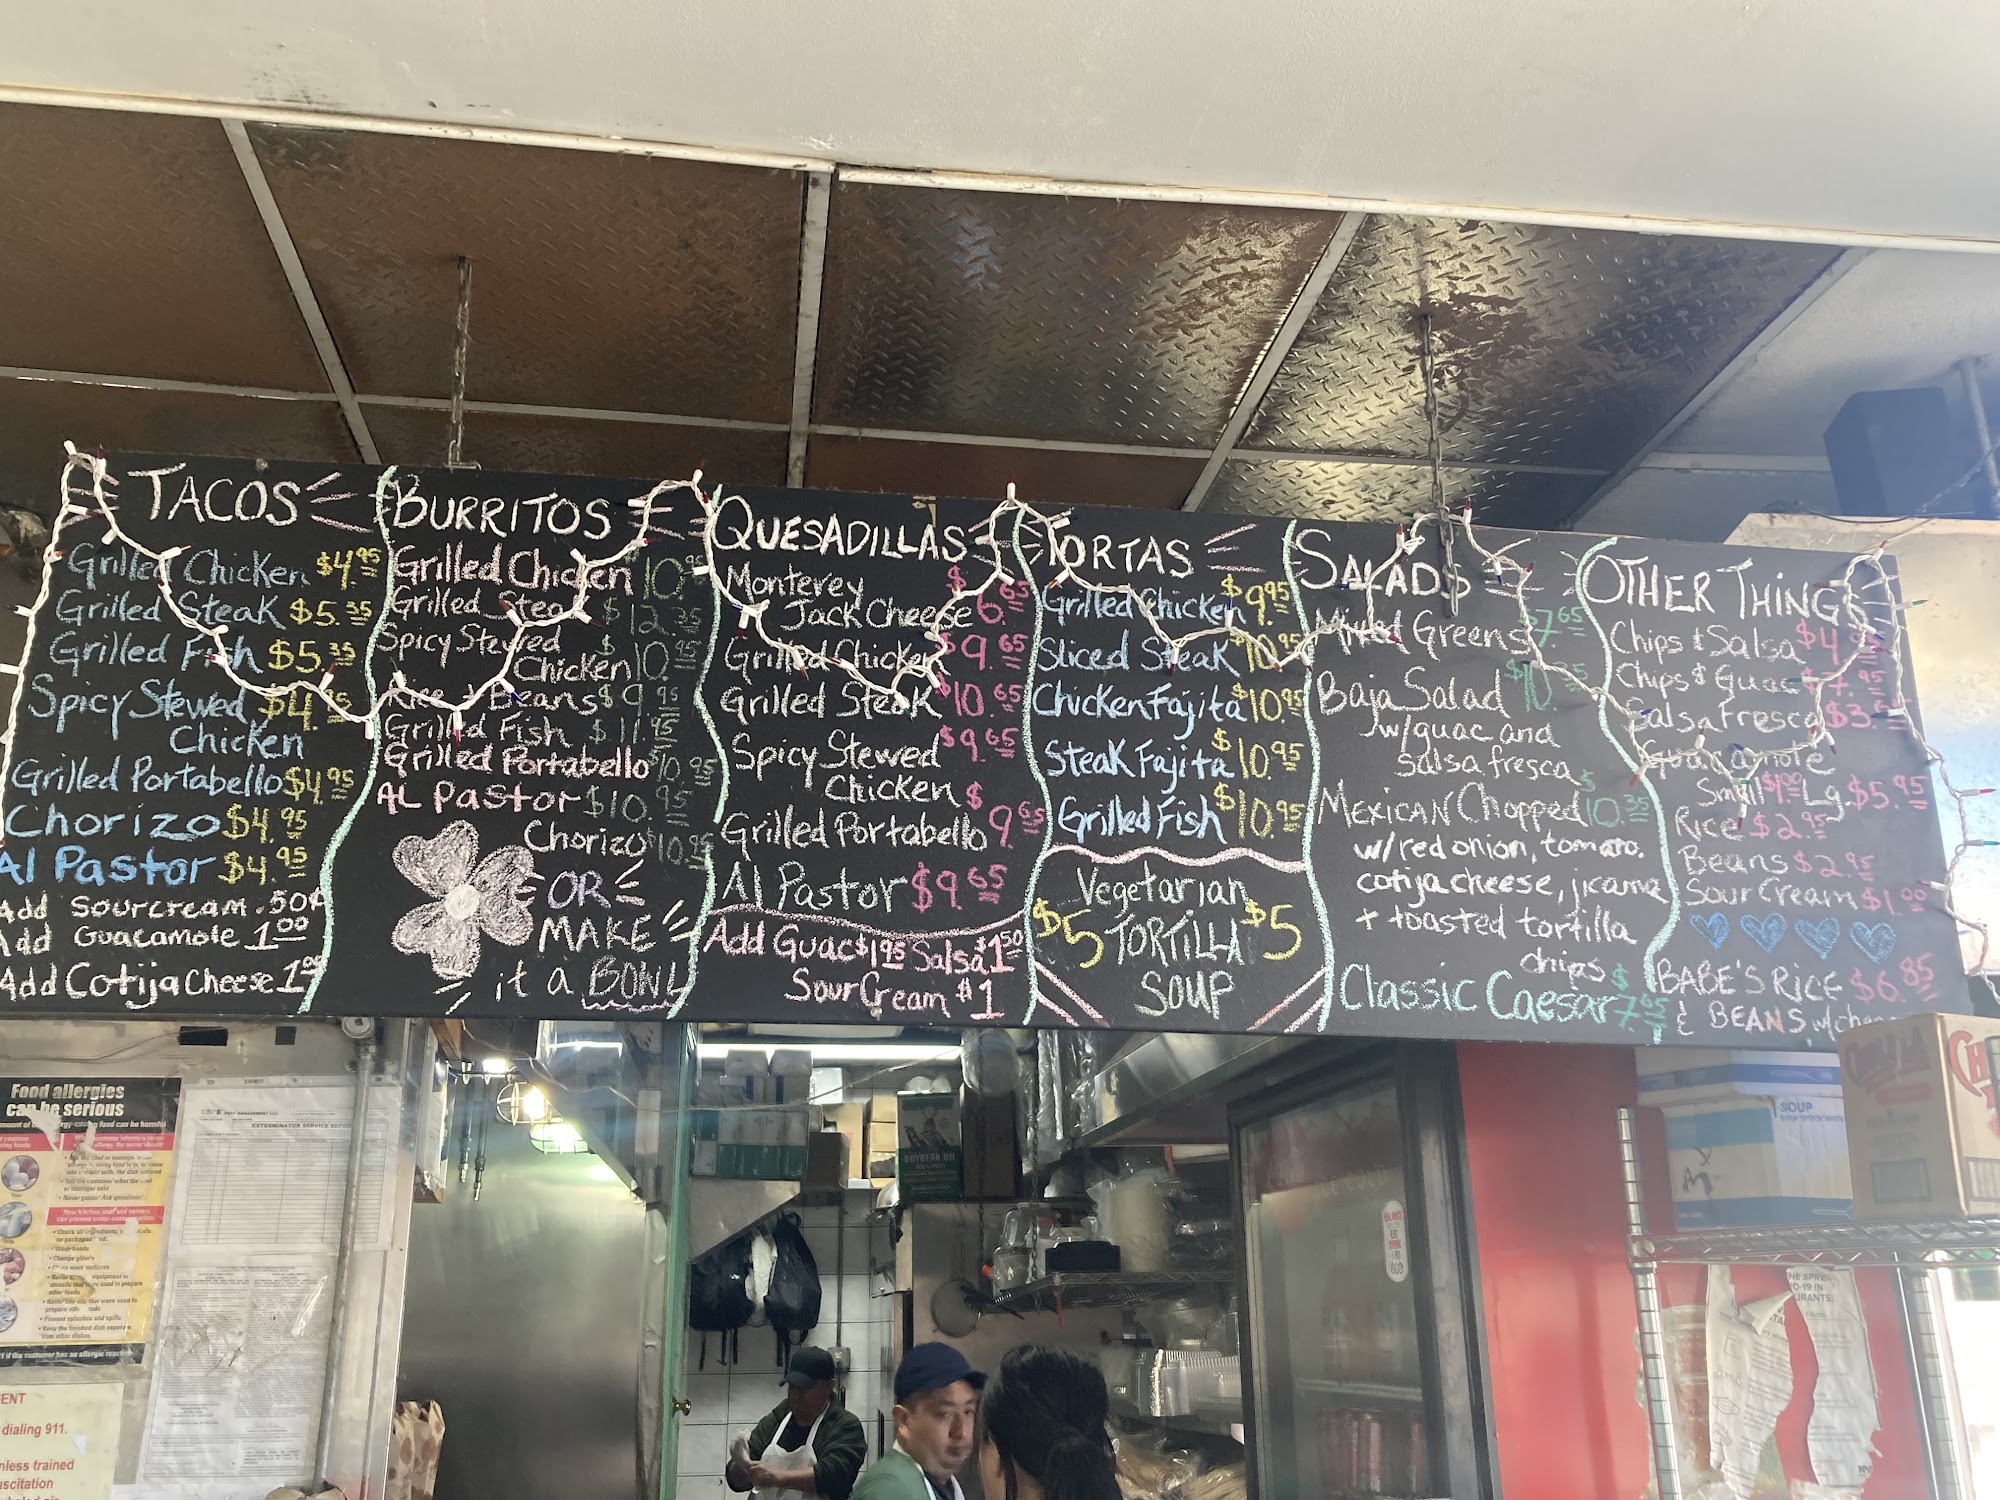 TACOS
Grilled Chicken $4.95
Grilled Steak $5.35
Grilled Fish $5.35
Spicy Stewed $4.95
Chicken
Grilled Portabello $4.95
Chorizo $4.95
Al Pastor $4.95
Add sourcream .50¢
Add Guacamole 1.00
Add Cotija Cheese 1.00
BURRITOS
Grilled Chicken 10.95
Grilled Steak $12.35
Spicy Stewed $
Chicken 10.95
Rice & Beans $9.95
Grilled Fish $11.95
Grilled Portabello $10.95
AL Pastor $10.95
Chorizo $10.95
OR
MAKE
it a BOWL
QUESADILLAS
Monterey $
Jack Cheese 6.65
Grilled Chicken $9.65
Grilled Steak $10.65
Spicy Stewed $9.65
Chicken $
Grilled Portabello 9.65
Al Pastor $9.65
Add Guac $1.95 Salsa $1.50
Sour Cream $1
TORTAS
Grilled Chicken $9.95
Sliced Steak $10.95
Chicken Fajita $10.95
Steak Fajita $10.95
Grilled Fish $10.95
Vegetarian
$5 TORTILLA $5
SOUP
SALADS
Mixed Greens $7.65
Baja Salad $10.35
w/guac and
salsa fresca $
MEXICAN Chopped 10.35
w/red onion, tomato,
cotija cheese, jicama
+ toasted tortilla
chips $
Classic Caesar 7.65
OTHER THINGS
Chips & Salsa $4.95
Chips & Guac $7.95
Salsa Fresca $3.
Guacamole
Small $1.00 Lg. $5.95
Rice $2.95
Beans $2.95
Sour Cream $1.00
BABE'S RICE $6.85
& BEANS w/
Food allergies
can be serious
EXTERMINATOR SERVICE REPORT
dialing 911.
SOYBEAN OIL
SOUP